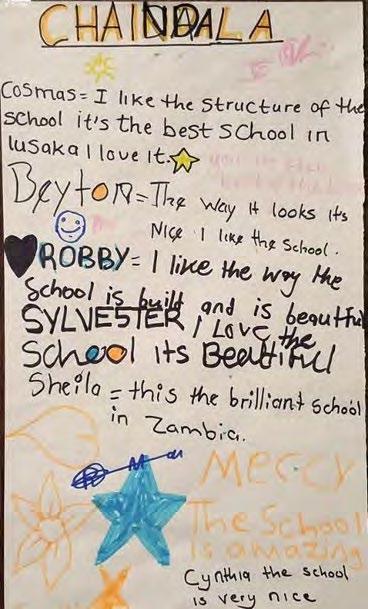 CHAINDALA
Cosmas = I like the structure of the
school it's the best school in
lusaka I love it.
Beyton = The way it looks its
Nice I like the school.
ROBBY = I like the way the
School is built and is beautiful
SYLVESTER I Love the
School its Beautiful
Sheila = this the brilliant school
in Zambia.
Mercy
The School
is amazing
Cynthia the school
is very nice